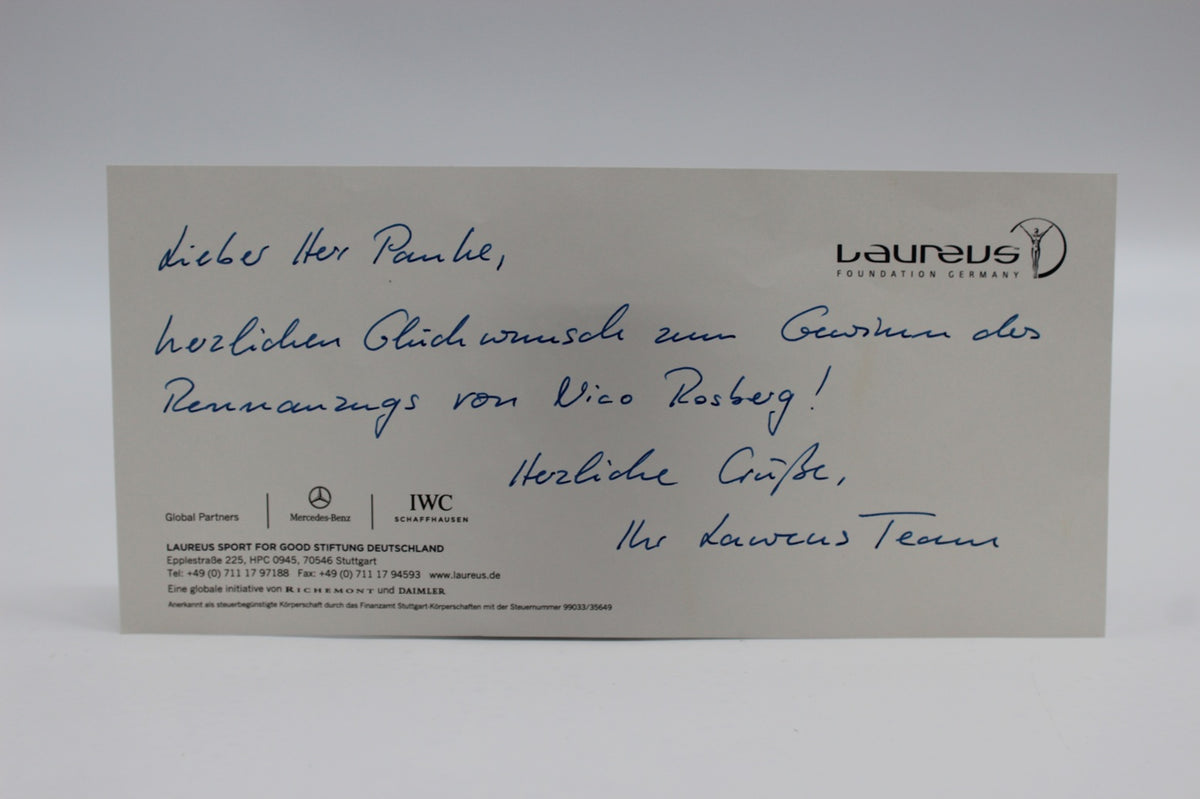 Lieber Herr Panke,
LAUREUS
FOUNDATION GERMANY
herzlichen Glückwunsch zum Gewinn des
Rennanzugs von Nico Rosberg!
Herzliche Grüße,
Ihr Laureus Team
Global Partners
Mercedes-Benz
IWC
SCHAFFHAUSEN
LAUREUS SPORT FOR GOOD STIFTUNG DEUTSCHLAND
Epplestraße 225, HPC 0945, 70546 Stuttgart
Tel: +49 (0) 711 17 97188 Fax: +49 (0) 711 17 94593 www.laureus.de
Eine globale initiative von RICHEMONT und DAIMLER
Anerkannt als steuerbegünstigte Körperschaft durch das Finanzamt Stuttgart-Körperschaften mit der Steuernummer 99033/35649